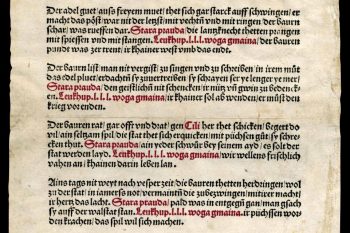 Der adel guet/ auss freyem muet/ thet sich gar starck auff schwingen/ er
macht das pöst/ war nit der lenst/ mit vechtn̄ vnd mit ringen der baurn
schar/ was rueffen dar. Stara prauda/ die lanntknecht thetten prangen
mit spiessen vnd mit stangen. Leukhup.l.l.l. woga gmaina/ der bauren
pundt was zertrent/ ir khainer west vmb das endt.
Der bauren list/ man nit vergist/ zu singen vnd zu schreiben/ in irem müt
das edel pluet/ erdachtn̄ sy zuuertreiben/ sy schrayen ser ye lenger ye mer/
Stara prauda, den geistlichn̄ nit schencken/ ir nüt yn̄ gwin zu bedenck-
en. Leukhup.l.l.l. woga gmaina/ ir khainer sol ab wenden/ er müst den
krieg vorenden.
Der bauren rat/ gar offt vnd drat/ gen Cili her thet schicken/ begert do
wil/ ain selgam spil/ die stat thet sich erquicken/ mit püchsen gut/ sy schre-
cken thut. Stara prauda/ ain yeder schwür bey seinem ayd/ es solt der
stat werden layd. Leukhup.l.l.l. woga gmaina/ wir wellens frischlich
wahen an/ khainen darin leben lan.
Ains tags nit weyt/ nach vesper zeit/ die bauren thetten herdringen/ wol
zu der stat/ in iamers not/ vermaintn̄ die zubezwingen/ mitt er macht ist
ir herz das lacht. Stara prauda/ pald was in entgegn gan/ man gsach
sy auff der walstat stan. Leukhup.l.l.l. woga gmaina. ir püchssen wor-
den krachen/ das spil wil sich machen.